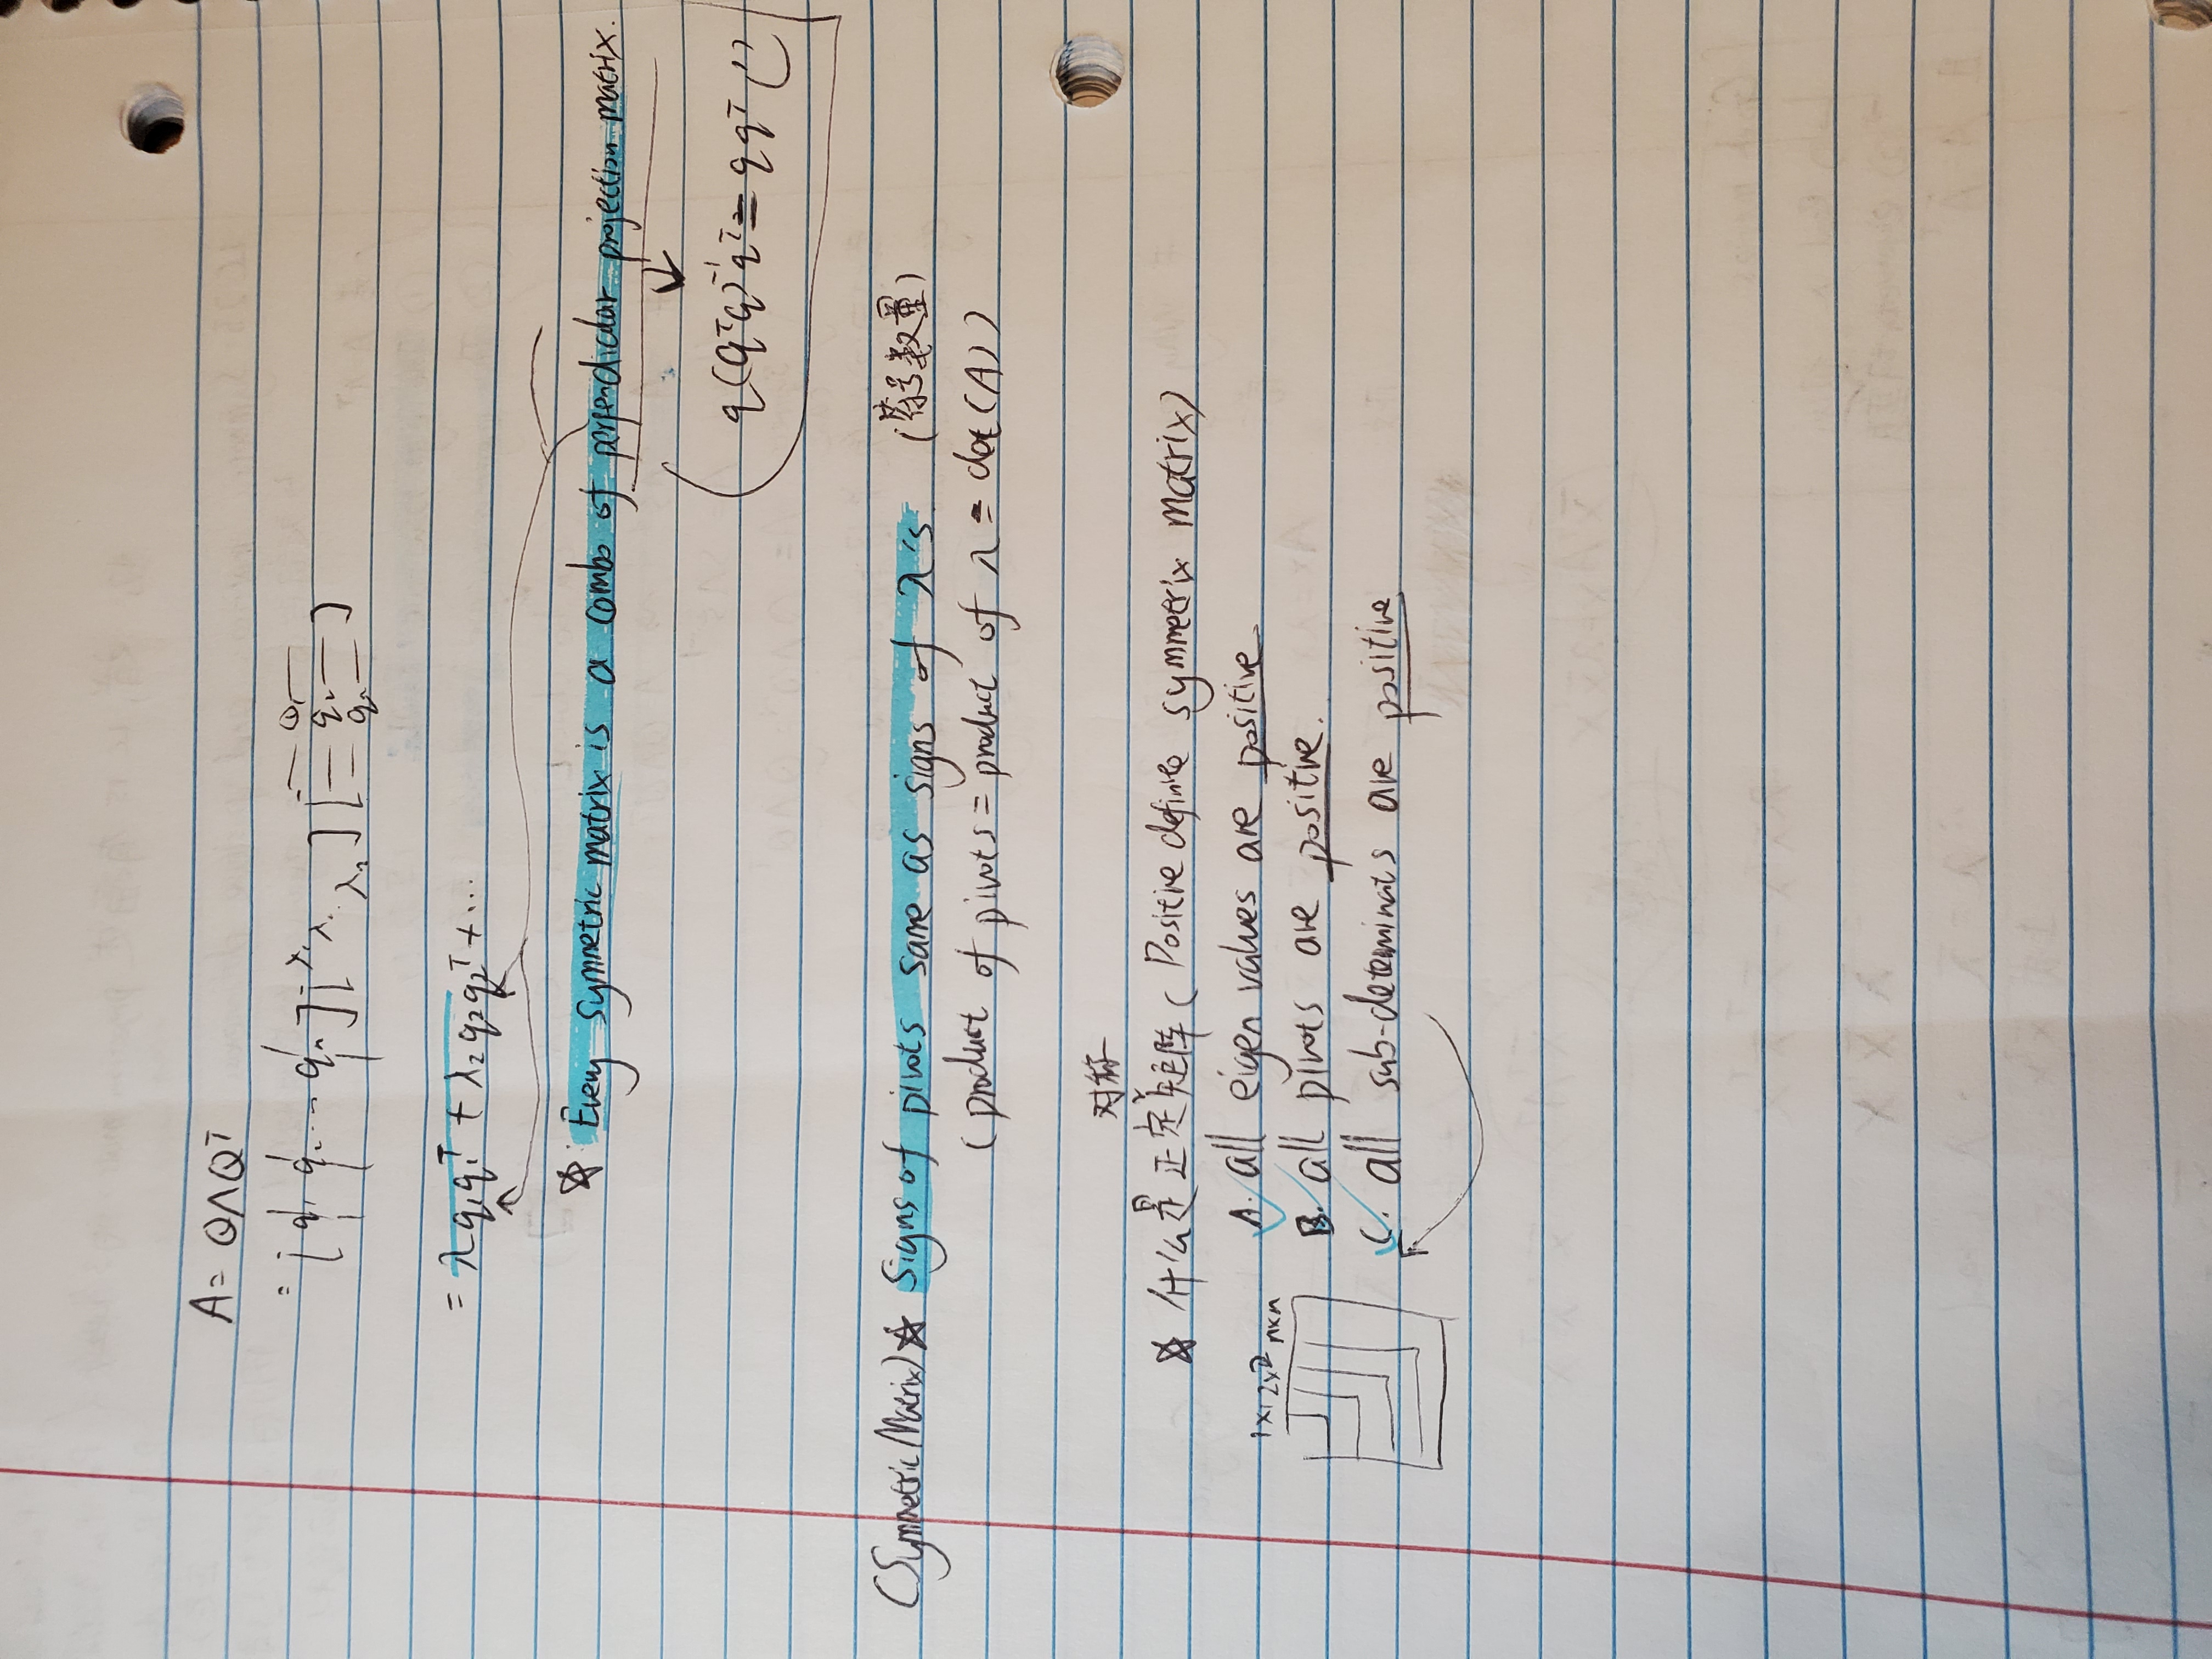 A = QΛQᵀ
= [q₁ q₂ ... qₙ] [λ₁ λ₂ λₙ] [— q₁ — q₂ — qₙ —]
= λq₁q₁ᵀ + λ₂q₂q₂ᵀ + ...
☆: Every symmetric matrix is a combo of perpendicular projection matrix.
q(qᵀq)⁻¹qᵀ = qqᵀ
(Symmetric Matrix) ☆ Signs of pivots same as signs of λ's (符号数量)
(product of pivots = product of λ = det(A))
对称
☆ 什么是正定矩阵 (Positive definite symmetrix matrix)
A. all eigen values are positive
1x1 2x2 nxn
B. all pivots are positive.
C. all sub-determinats are positive